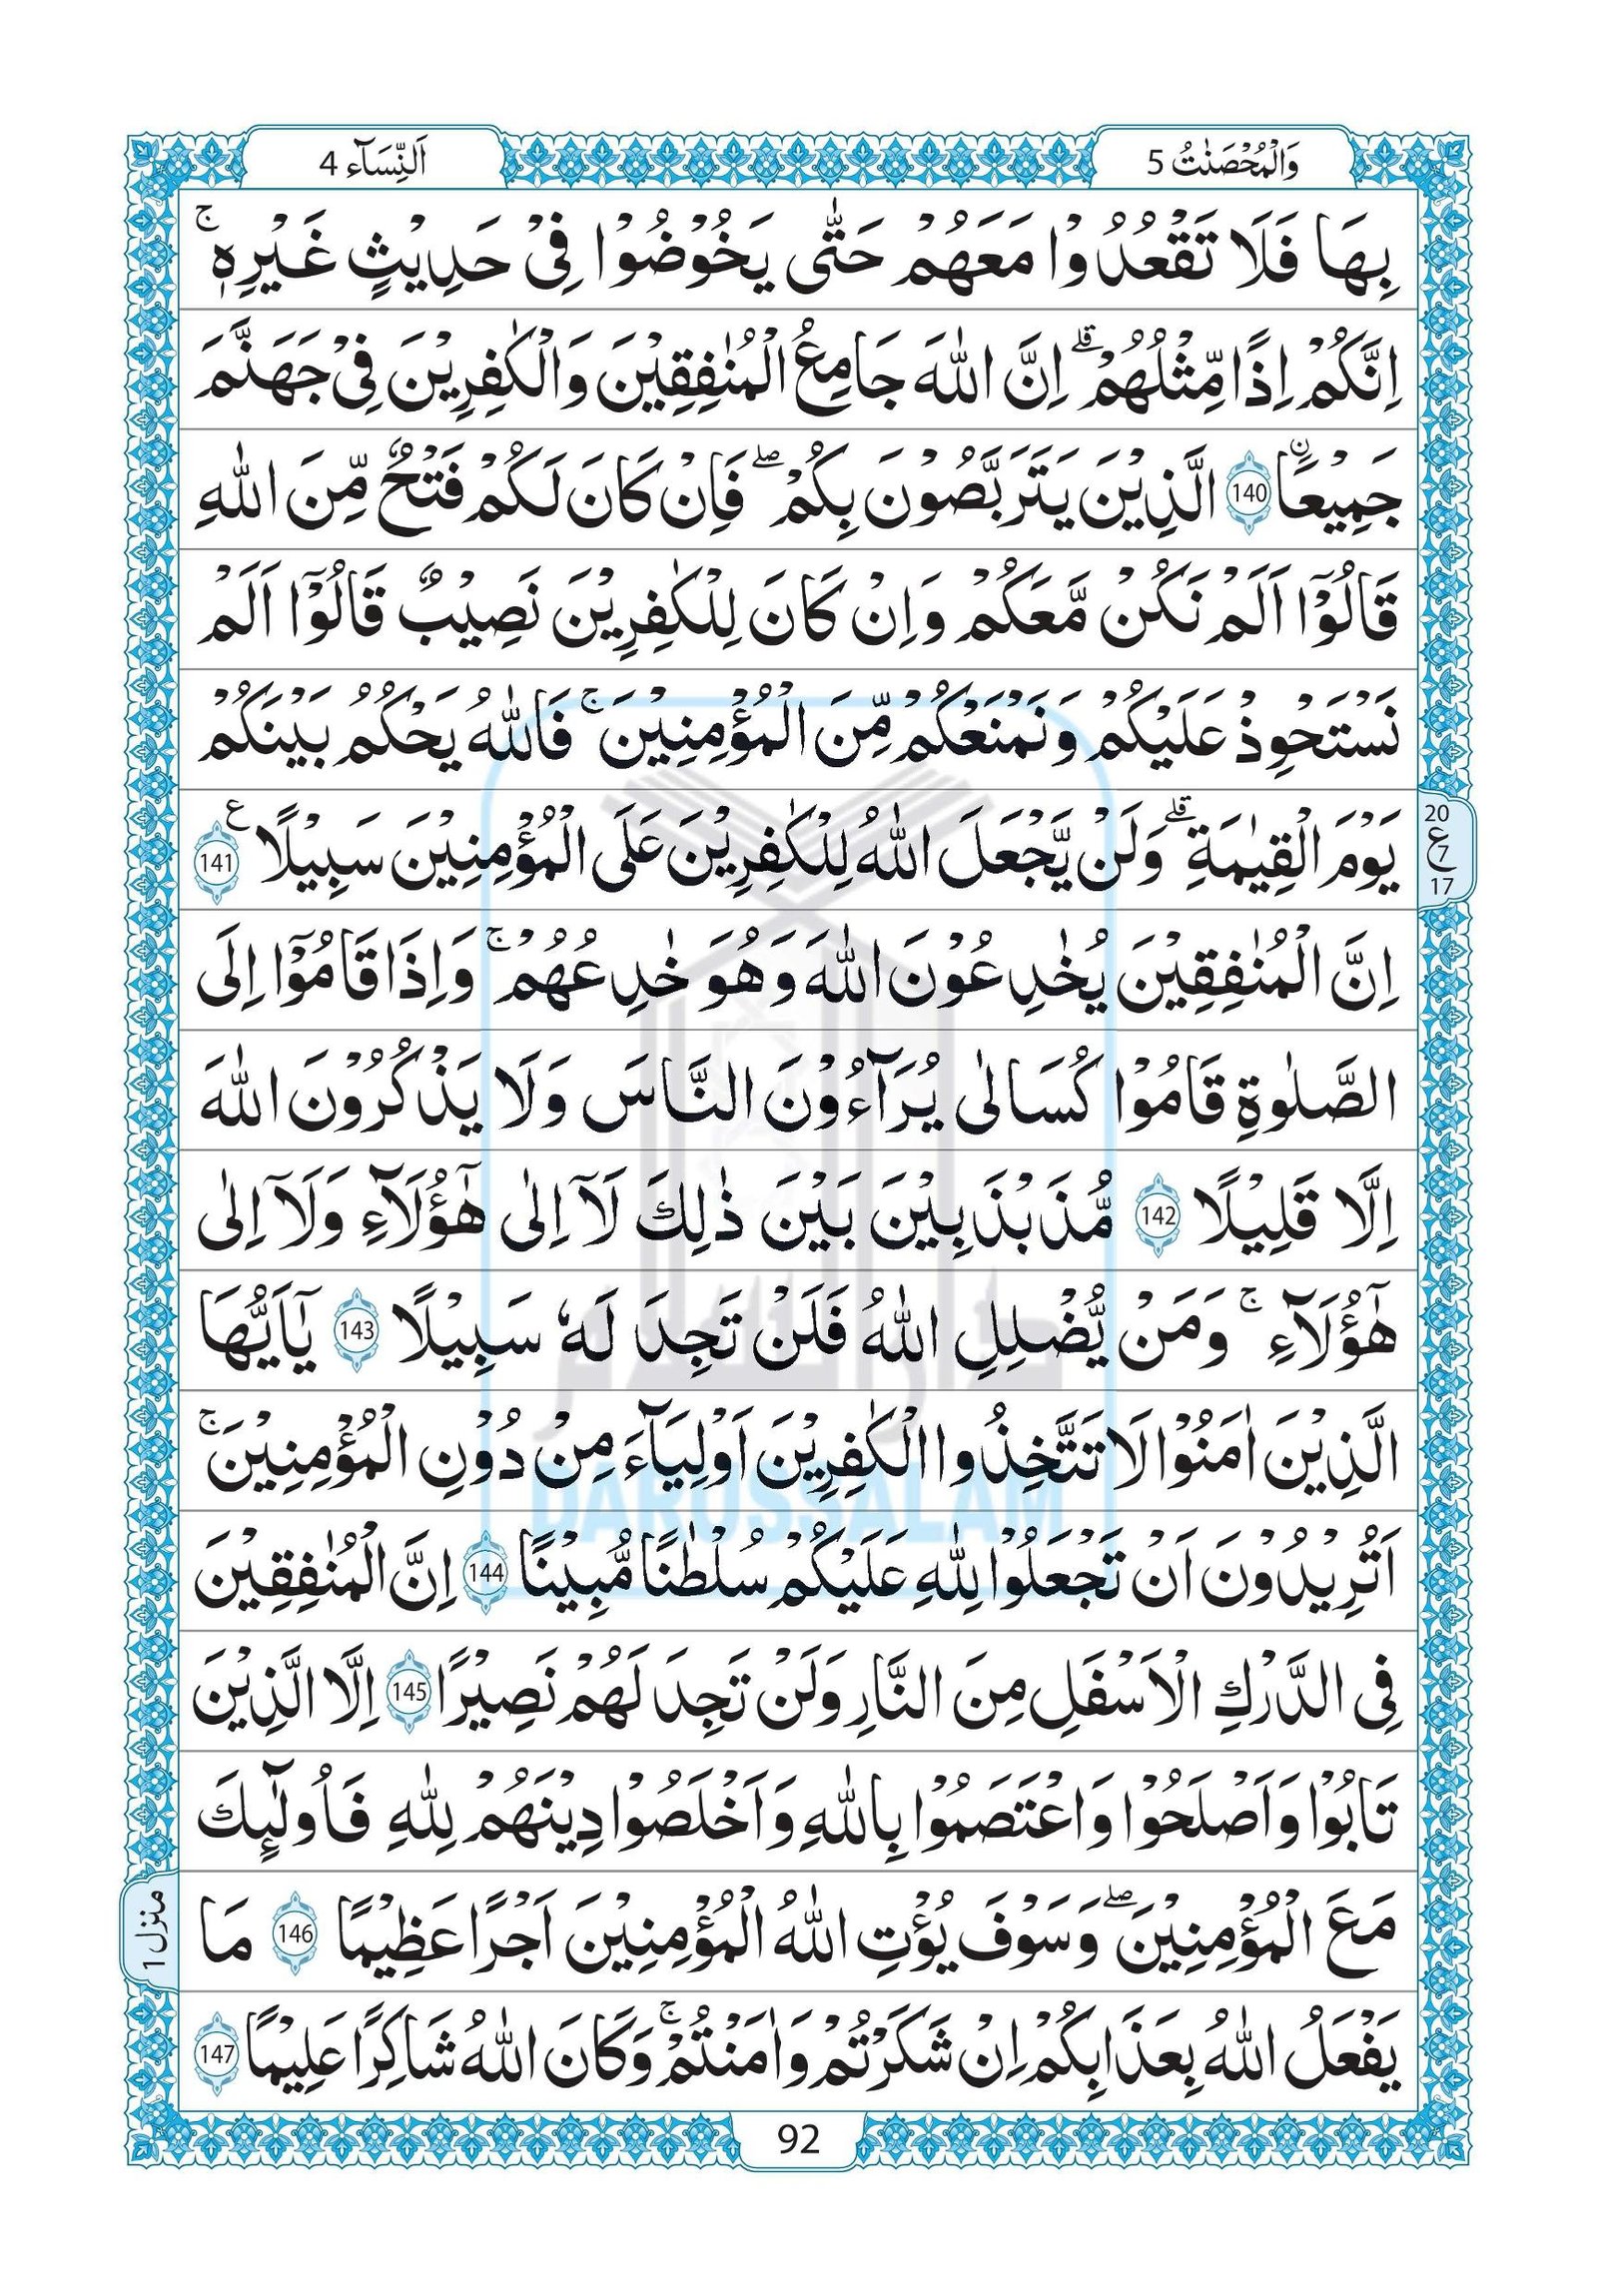 وَالْمُحْصَنٰتُ 5
اَلنِّسَآء 4
بِهَا فَلَا تَقْعُدُوْا مَعَهُمْ حَتّٰى يَخُوْضُوْا فِىْ حَدِيْثٍ غَيْرِهٖۤ ۚ
اِنَّكُمْ اِذًا مِّثْلُهُمْ ؕ اِنَّ اللّٰهَ جَامِعُ الْمُنٰفِقِيْنَ وَالْكٰفِرِيْنَ فِىْ جَهَنَّمَ
جَمِيْعًا ۙ 140 الَّذِيْنَ يَتَرَبَّصُوْنَ بِكُمْ ۖ فَاِنْ كَانَ لَكُمْ فَتْحٌ مِّنَ اللّٰهِ
قَالُوْۤا اَلَمْ نَكُنْ مَّعَكُمْ وَاِنْ كَانَ لِلْكٰفِرِيْنَ نَصِيْبٌ قَالُوْۤا اَلَمْ
نَسْتَحْوِذْ عَلَيْكُمْ وَنَمْنَعْكُمْ مِّنَ الْمُؤْمِنِيْنَ ۚ فَاللّٰهُ يَحْكُمُ بَيْنَكُمْ
يَوْمَ الْقِيٰمَةِ ۗ وَلَنْ يَّجْعَلَ اللّٰهُ لِلْكٰفِرِيْنَ عَلَى الْمُؤْمِنِيْنَ سَبِيْلًا ع 141
20
ع
7
17
اِنَّ الْمُنٰفِقِيْنَ يُخٰدِعُوْنَ اللّٰهَ وَهُوَ خٰدِعُهُمْ ۚ وَاِذَا قَامُوْۤا اِلَى
الصَّلٰوةِ قَامُوْا كُسَالٰى يُرَآءُوْنَ النَّاسَ وَلَا يَذْكُرُوْنَ اللّٰهَ
اِلَّا قَلِيْلًا 142 مُّذَبْذَبِيْنَ بَيْنَ ذٰلِكَ لَاۤ اِلٰى هٰۤؤُلَآءِ وَلَاۤ اِلٰى
هٰۤؤُلَآءِ ۚ وَمَنْ يُّضْلِلِ اللّٰهُ فَلَنْ تَجِدَ لَهٗ سَبِيْلًا 143 يٰۤاَيُّهَا
الَّذِيْنَ اٰمَنُوْا لَا تَتَّخِذُوا الْكٰفِرِيْنَ اَوْلِيَآءَ مِنْ دُوْنِ الْمُؤْمِنِيْنَ ۚ
اَتُرِيْدُوْنَ اَنْ تَجْعَلُوْا لِلّٰهِ عَلَيْكُمْ سُلْطٰنًا مُّبِيْنًا 144 اِنَّ الْمُنٰفِقِيْنَ
فِى الدَّرْكِ الْاَسْفَلِ مِنَ النَّارِ وَلَنْ تَجِدَ لَهُمْ نَصِيْرًا 145 اِلَّا الَّذِيْنَ
تَابُوْا وَاَصْلَحُوْا وَاعْتَصَمُوْا بِاللّٰهِ وَاَخْلَصُوْا دِيْنَهُمْ لِلّٰهِ فَاُولٰٓئِكَ
مَعَ الْمُؤْمِنِيْنَ ۖ وَسَوْفَ يُؤْتِ اللّٰهُ الْمُؤْمِنِيْنَ اَجْرًا عَظِيْمًا 146 مَا
يَفْعَلُ اللّٰهُ بِعَذَابِكُمْ اِنْ شَكَرْتُمْ وَاٰمَنْتُمْ ۚ وَكَانَ اللّٰهُ شَاكِرًا عَلِيْمًا 147
منزل 1
92
دارالسلام
DARUSSALAM